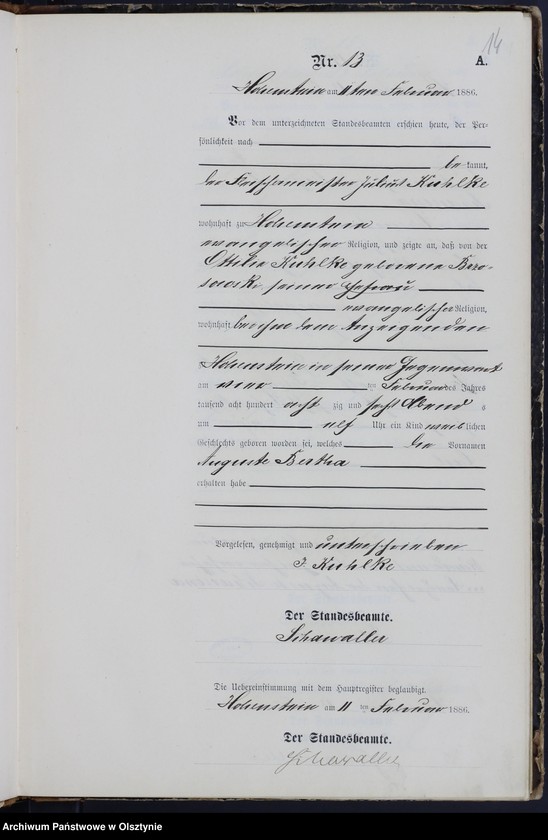 14
Nr. 13 A.
Hohenstein am 11 ten Februar 1886.
Vor dem unterzeichneten Standesbeamten erschien heute, der Per-
sönlichkeit nach
be kannt,
der Fleischermeister Julius Kuhlke
wohnhaft zu Hohenstein
evangelischer Religion, und zeigte an, daß von der
Ottilie Kuhlke geborene Brzo-
sowski, seiner Ehefrau
evangelischer Religion,
wohnhaft bei dem Anzeigenden
zu Hohenstein in seiner Gegenwart
am vier ten Februar des Jahres
tausend acht hundert acht zig und sechs Abends
um elf Uhr ein Kind weib lichen
Geschlechts geboren worden sei, welches die Vornamen
Auguste Bertha
erhalten habe
Vorgelesen, genehmigt und unterschrieben
J. Kuhlke
Der Standesbeamte.
Schawaller
Die Uebereinstimmung mit dem Hauptregister beglaubigt.
Hohenstein am 11 ten Februar 1886.
Der Standesbeamte.
Schawaller
Archiwum Państwowe w Olsztynie